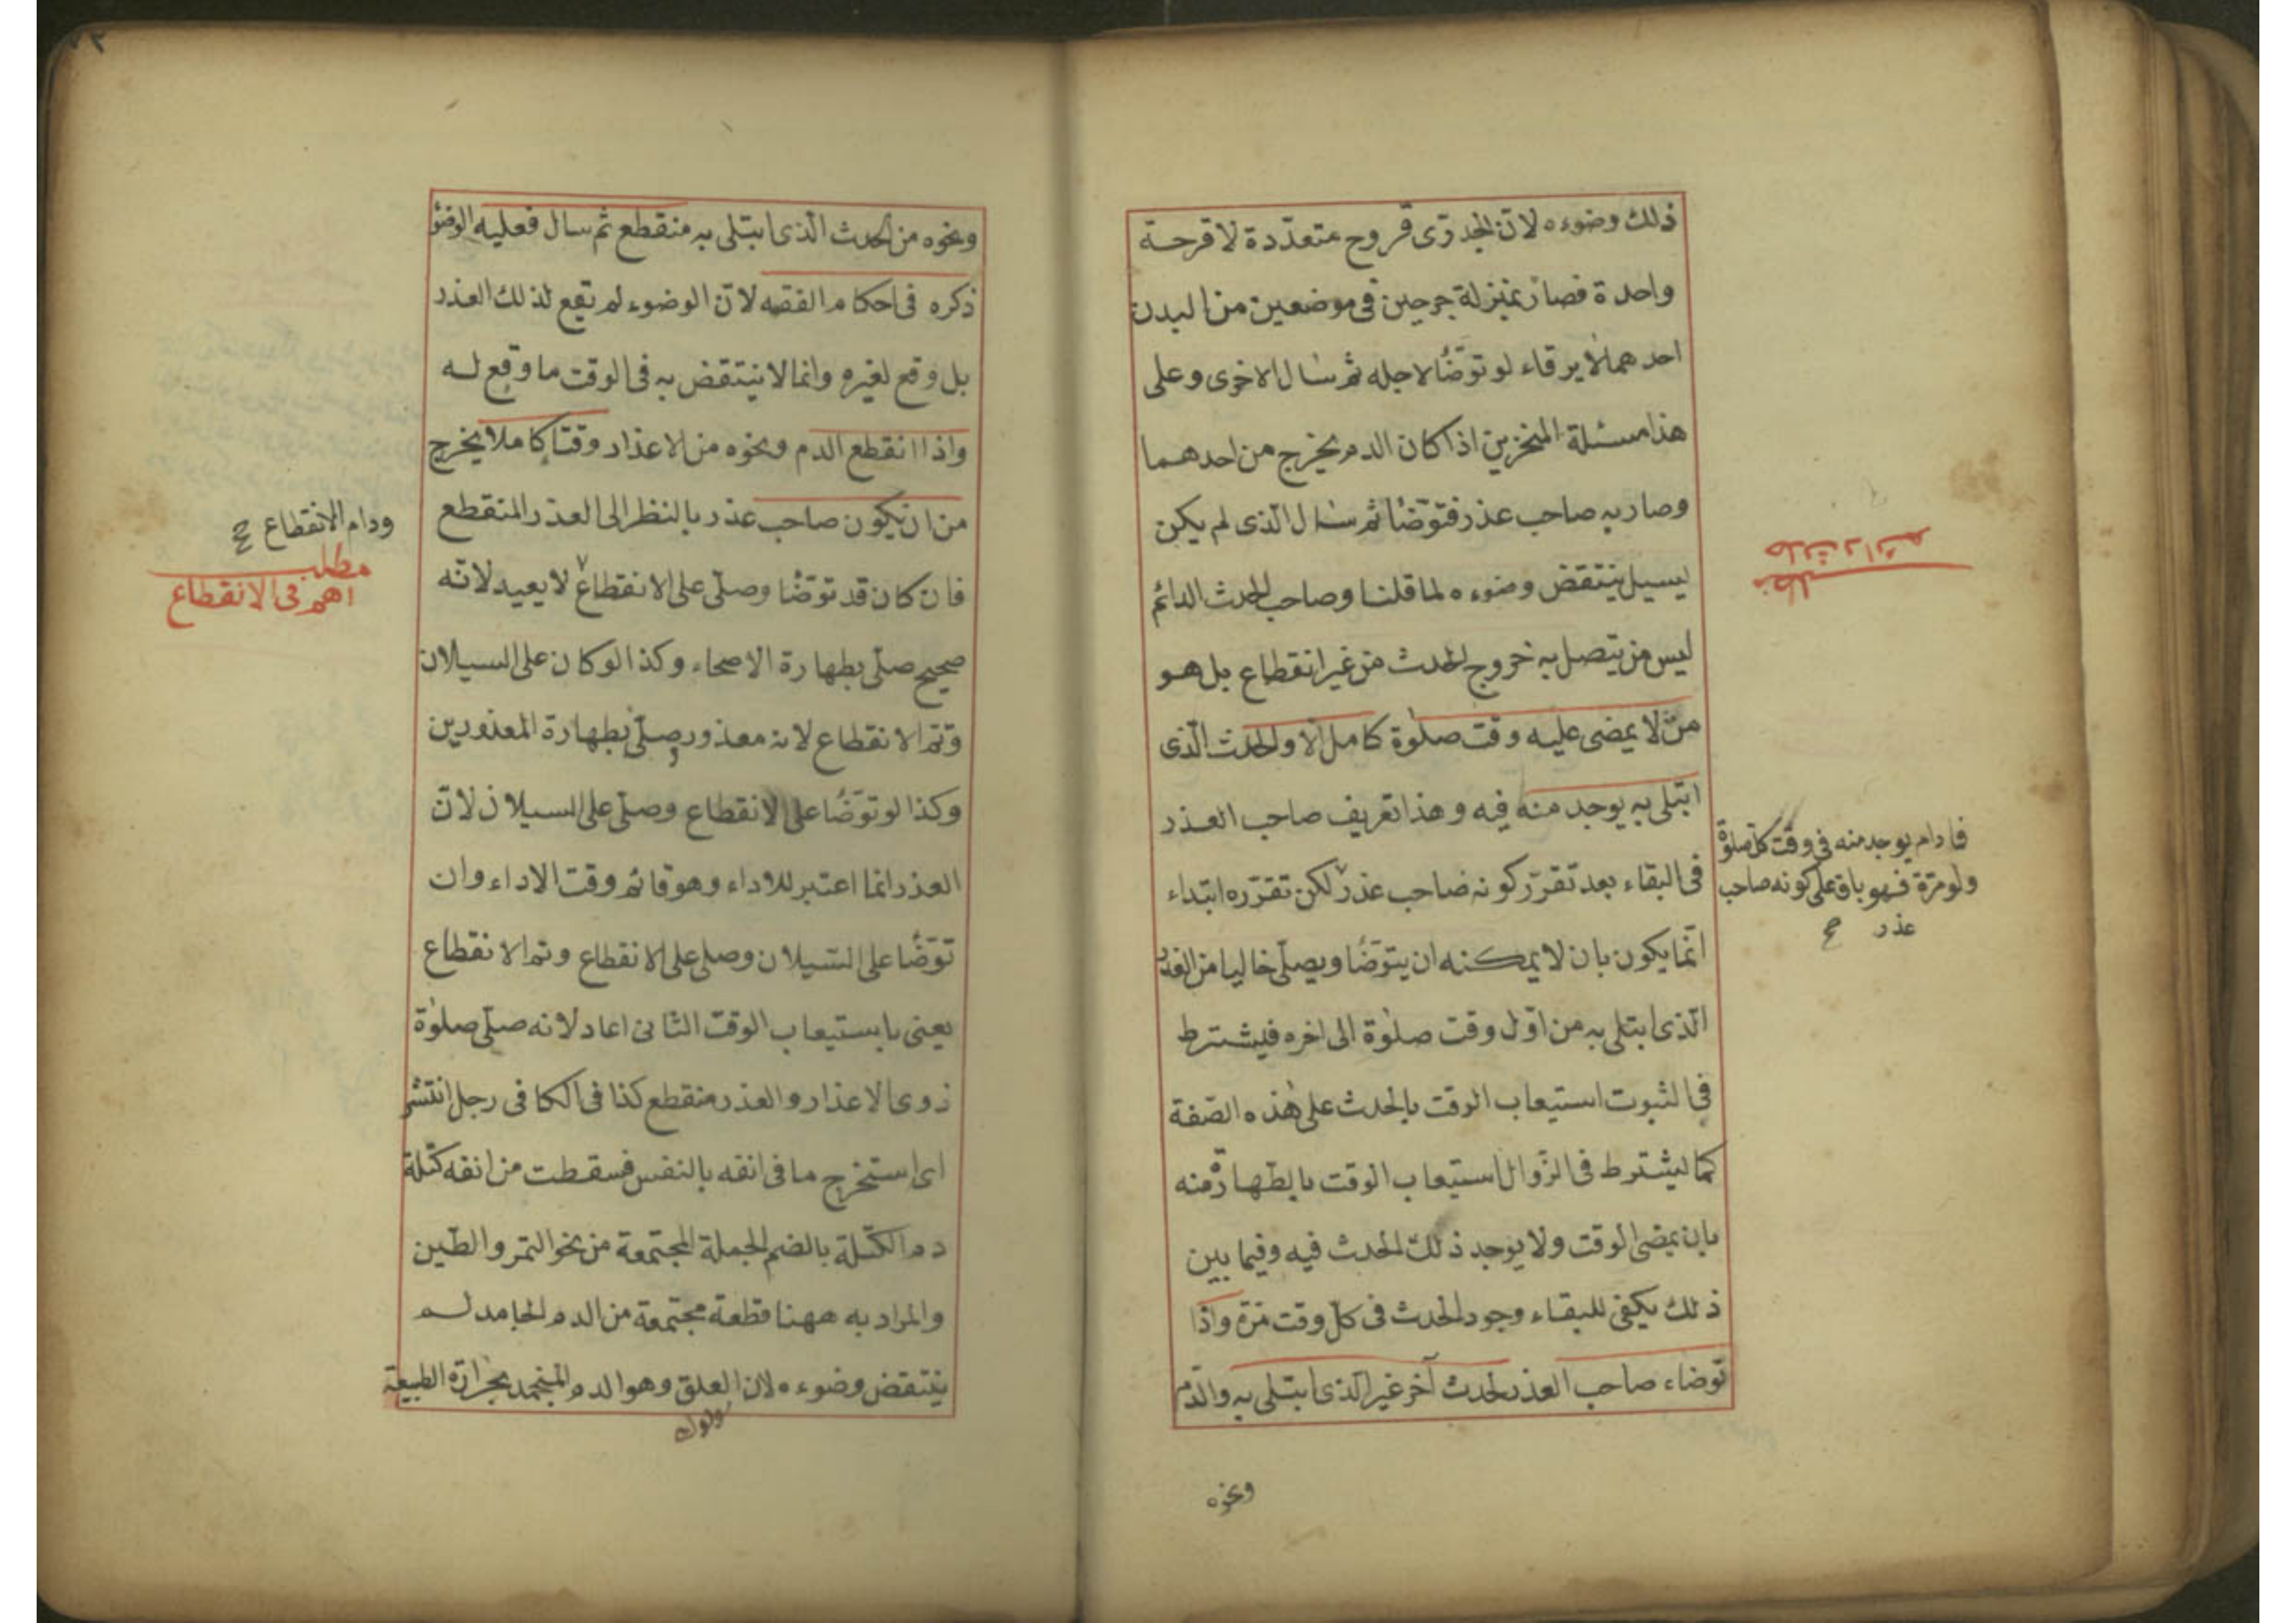 ذلك وضوءه لانّ الجدرّى قروح متعدّدة لا قرحة
واحدة فصار بمنزلة جرحين فى موضعين من البدن
احدهما لا يرقاء لو توضّأ لاجله ثم سال الاخرى وعلى
هذا مسئلة المنخزين اذا كان الدم يخرج من احدهما
وصار به صاحب عذر فتوضّأ ثم سال الّذى لم يكن
يسيل ينتقض وضوءه لما قلنا وصاحب الحدث الدائم
ليس من يتصل به خروج الحدث من غير انقطاع بل هو
من لا يمضى عليه وقت صلوة كامل الا والحدث الّذى
ابتلى به يوجد منه فيه وهذا تعريف صاحب العذر
فى البقاء بعد تقرّر كونه صاحب عذر لكن تقرّره ابتداء
انّما يكون بان لا يمكنه ان يتوضّأ ويصلّى خاليا من العذر
الّذى ابتلى به من اوّل وقت صلوة الى اخره فيشترط
فى الثبوت استيعاب الوقت بالحدث على هذه الصّفة
كما يشترط فى الزّوال استيعاب الوقت بالطّهارة منه
بان يمضى الوقت ولا يوجد ذلك الحدث فيه وفيما بين
ذلك يكفى للبقاء وجود الحدث فى كلّ وقت مرّة واذا
توضاء صاحب العذر لحدث آخر غير الّذى ابتلى به والدّم
ونحوه
حدث دائم
مطلب
فما دام يوجد منه فى وقت كل صلوة
ولو مرّة فهو باق على كونه صاحب
عذر صح
ونحوه من الحدث الّذى ابتلى به منقطع ثم سال فعليه الوضؤ
ذكره فى احكام الفقه لانّ الوضوء لم تقع لذلك العذر
بل وقع لغيره وانما لا ينتقض به فى الوقت ما وقع له
واذا انقطع الدم ونحوه من الاعذار وقتا كاملا يخرج
من ان يكون صاحب عذر بالنظر الى العذر المنقطع
فان كان قد توضّأ وصلّى على الانقطاع لا يعيد لانّه
صحيح صلّى بطهارة الاصحاء وكذا لو كان على السيلان
وتم الانقطاع لانه معذور وصلّى بطهارة المعذورين
وكذا لو توضّأ على الانقطاع وصلّى على السيلان لانّ
العذر انما اعتبر للاداء وهو قائم وقت الاداء وان
توضّأ على السّيلان وصلى على الانقطاع وتم الانقطاع
يعنى باستيعاب الوقت الثانى اعاد لانه صلّى صلوة
ذوى الاعذار والعذر منقطع كذا فى الكافى رجل انتشر
اى استخرج ما فى انفه بالنفس فسقطت من انفه كتلة
دم الكتلة بالضم الجملة المجتمعة من نحو التمر والطّين
والمراد به ههنا قطعة مجتمعة من الدم الجامد لم
ينتقض وضوءه لان العلق وهو الدم المنجمد بحرارة الطبيعة
ودام الانقطاع صح
مطلب
اهم فى الانقطاع